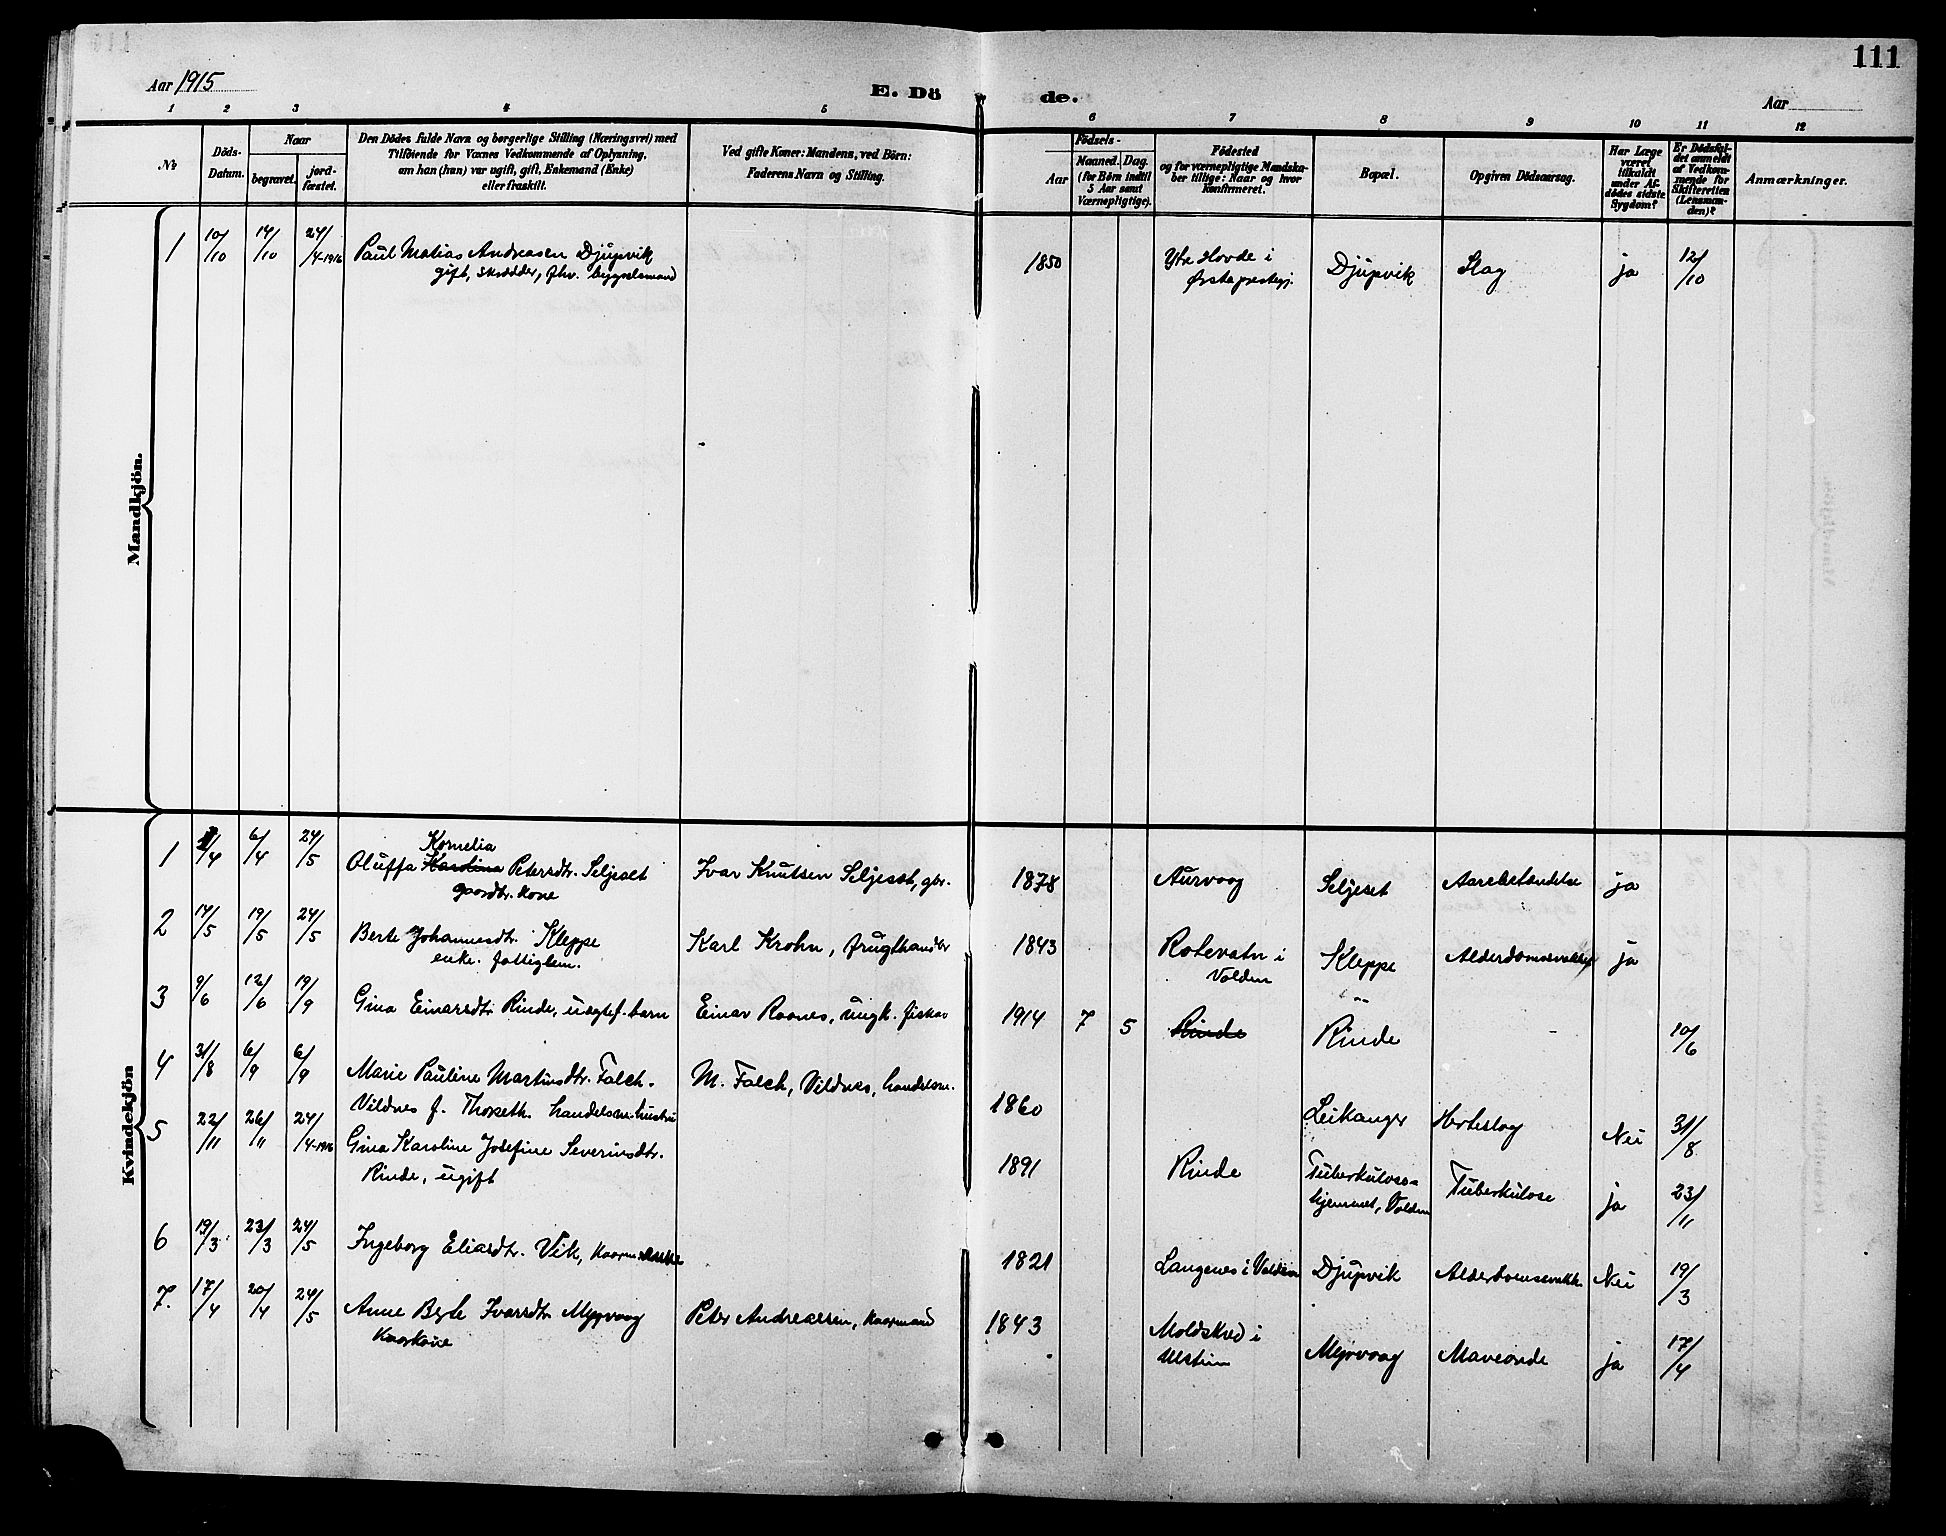 111
Aar 1915
E. Dö
de.
Aar
1 2 3 4 5 6 7 8 9 10 11 12
№
Döds-
Datum.
Naar
begravet.
jord-
fæstet.
Den Dödes fulde Navn og borgerlige Stilling (Næringsvei) med
Tilföiende for Voxnes Vedkommende af Oplysning,
om han (hun) var ugift, gift, Enkemand (Enke)
eller fraskilt.
Ved gifte Koner: Mandens, ved Börn:
Faderens Navn og Stilling.
Födsels-
Aar
Maaned. Dag.
(for Börn indtil
5 Aar samt
Værnepligtige).
Födested
og for værnepligtige Mandska-
ber tillige: Naar og hvor
konfirmeret.
Bopæl.
Opgiven Dödsaarsag.
Har Læge
været
tilkaldt
under Af-
dödes sidste
Sygdom?
Er Dödsfal-
det anmeldt
af Vedkom-
mende for
Skifteretten
(Lensman-
den)?
Anmærkninger.
Mandkjön.
1 10/10 14/10 24/4-1916 Paul Matias Andreasen Djupvik 1850 Ytre Hovde i Djupvik Slag ja 12/10
gift, skrædder, fhv. bygselsmand Ørsta prestegj.
Kvindekjön
Kornelia
1 1/4 6/4 24/5 Oluffa Karolina Petersdtr. Seljeset Ivar Knutsen Seljeset, gbr. 1878 Aurvaag Seljeset Aarebetændelse ja
gaardbr. kone
2 14/5 19/5 24/5 Berte Johannesdtr. Kleppe Karl Krohn, 1843 Rotevatn i Kleppe ja
enke. fattiglem. Volden
3 9/6 12/6 19/9 Gina Einarsdtr. Rinde, uægtef. barn Einar Raanes, ungk. fisker 1914 7 5 Rinde Rinde 10/6
4 31/8 6/9 6/9 Marie Pauline Martinsdtr. Falch. M. Falch, Vildnes, handelsm. 1860 Leikanger Hjerteslag Nei 31/8
Vildnes f. Thorseth. handelsm. hustru
5 22/11 26/11 24/4-1916 Gina Karoline Josefine Severinsdtr. 1891 Rinde Tuberkulose- Tuberkulose ja 23/11
Rinde, ugift hjemmet, Volden
6 19/3 23/3 24/5 Ingeborg Eliasdtr. Vik, 1821 Langenes i Volden Djupvik Alderdomssvakh. Nei 19/3
7. 17/4 20/4 24/5 Anne Berte Ivarsdtr. Myrvaag Peter Andreassen, kaarmand 1843 Moldskred i Myrvaag Maveonde ja 17/4
Kaarkone Ulstein